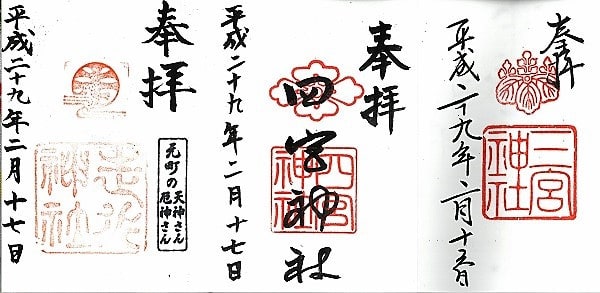 奉拝
二宮
神社
平成二十九年二月十五日
奉拝
四宮神社
四宮
神社
平成二十九年二月十七日
奉拝
元町の
天神さん
厄神さん
走水
神社
平成二十九年二月十七日